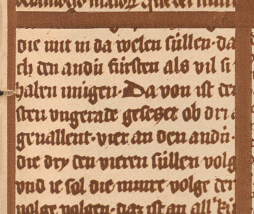 die mit in da welen süllen · da
ch den andn̄ fürsten als vil si
halen mügen · Da von ist der
sten vngerade geseczet ob dri
geuallent · vier an den andn̄ ·
die dry den vieren süllen volg
vnd ie sol die minre volge der
volge volgen · daz ist an all